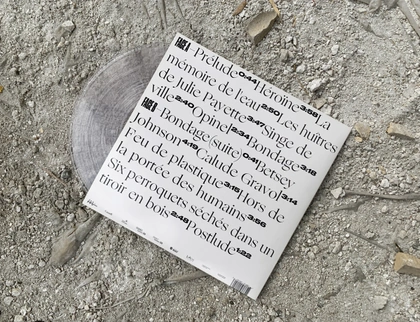 FACE A Prélude 0:44 Héroïne 3:58 La
mémoire de l'eau 2:50 Les huîtres
de Julie Payette 3:47 Singe de
ville 2:40 Opinel 2:34 Bondage 3:18
FACE B Bondage (suite) 0:41 Betsey
Johnson 4:19 Calude Gravol 3:14
Feu de plastique 3:15 Hors de
la portée des humains 3:56
Six perroquets séchés dans un
tiroir en bois 2:48 Postlude 1:22